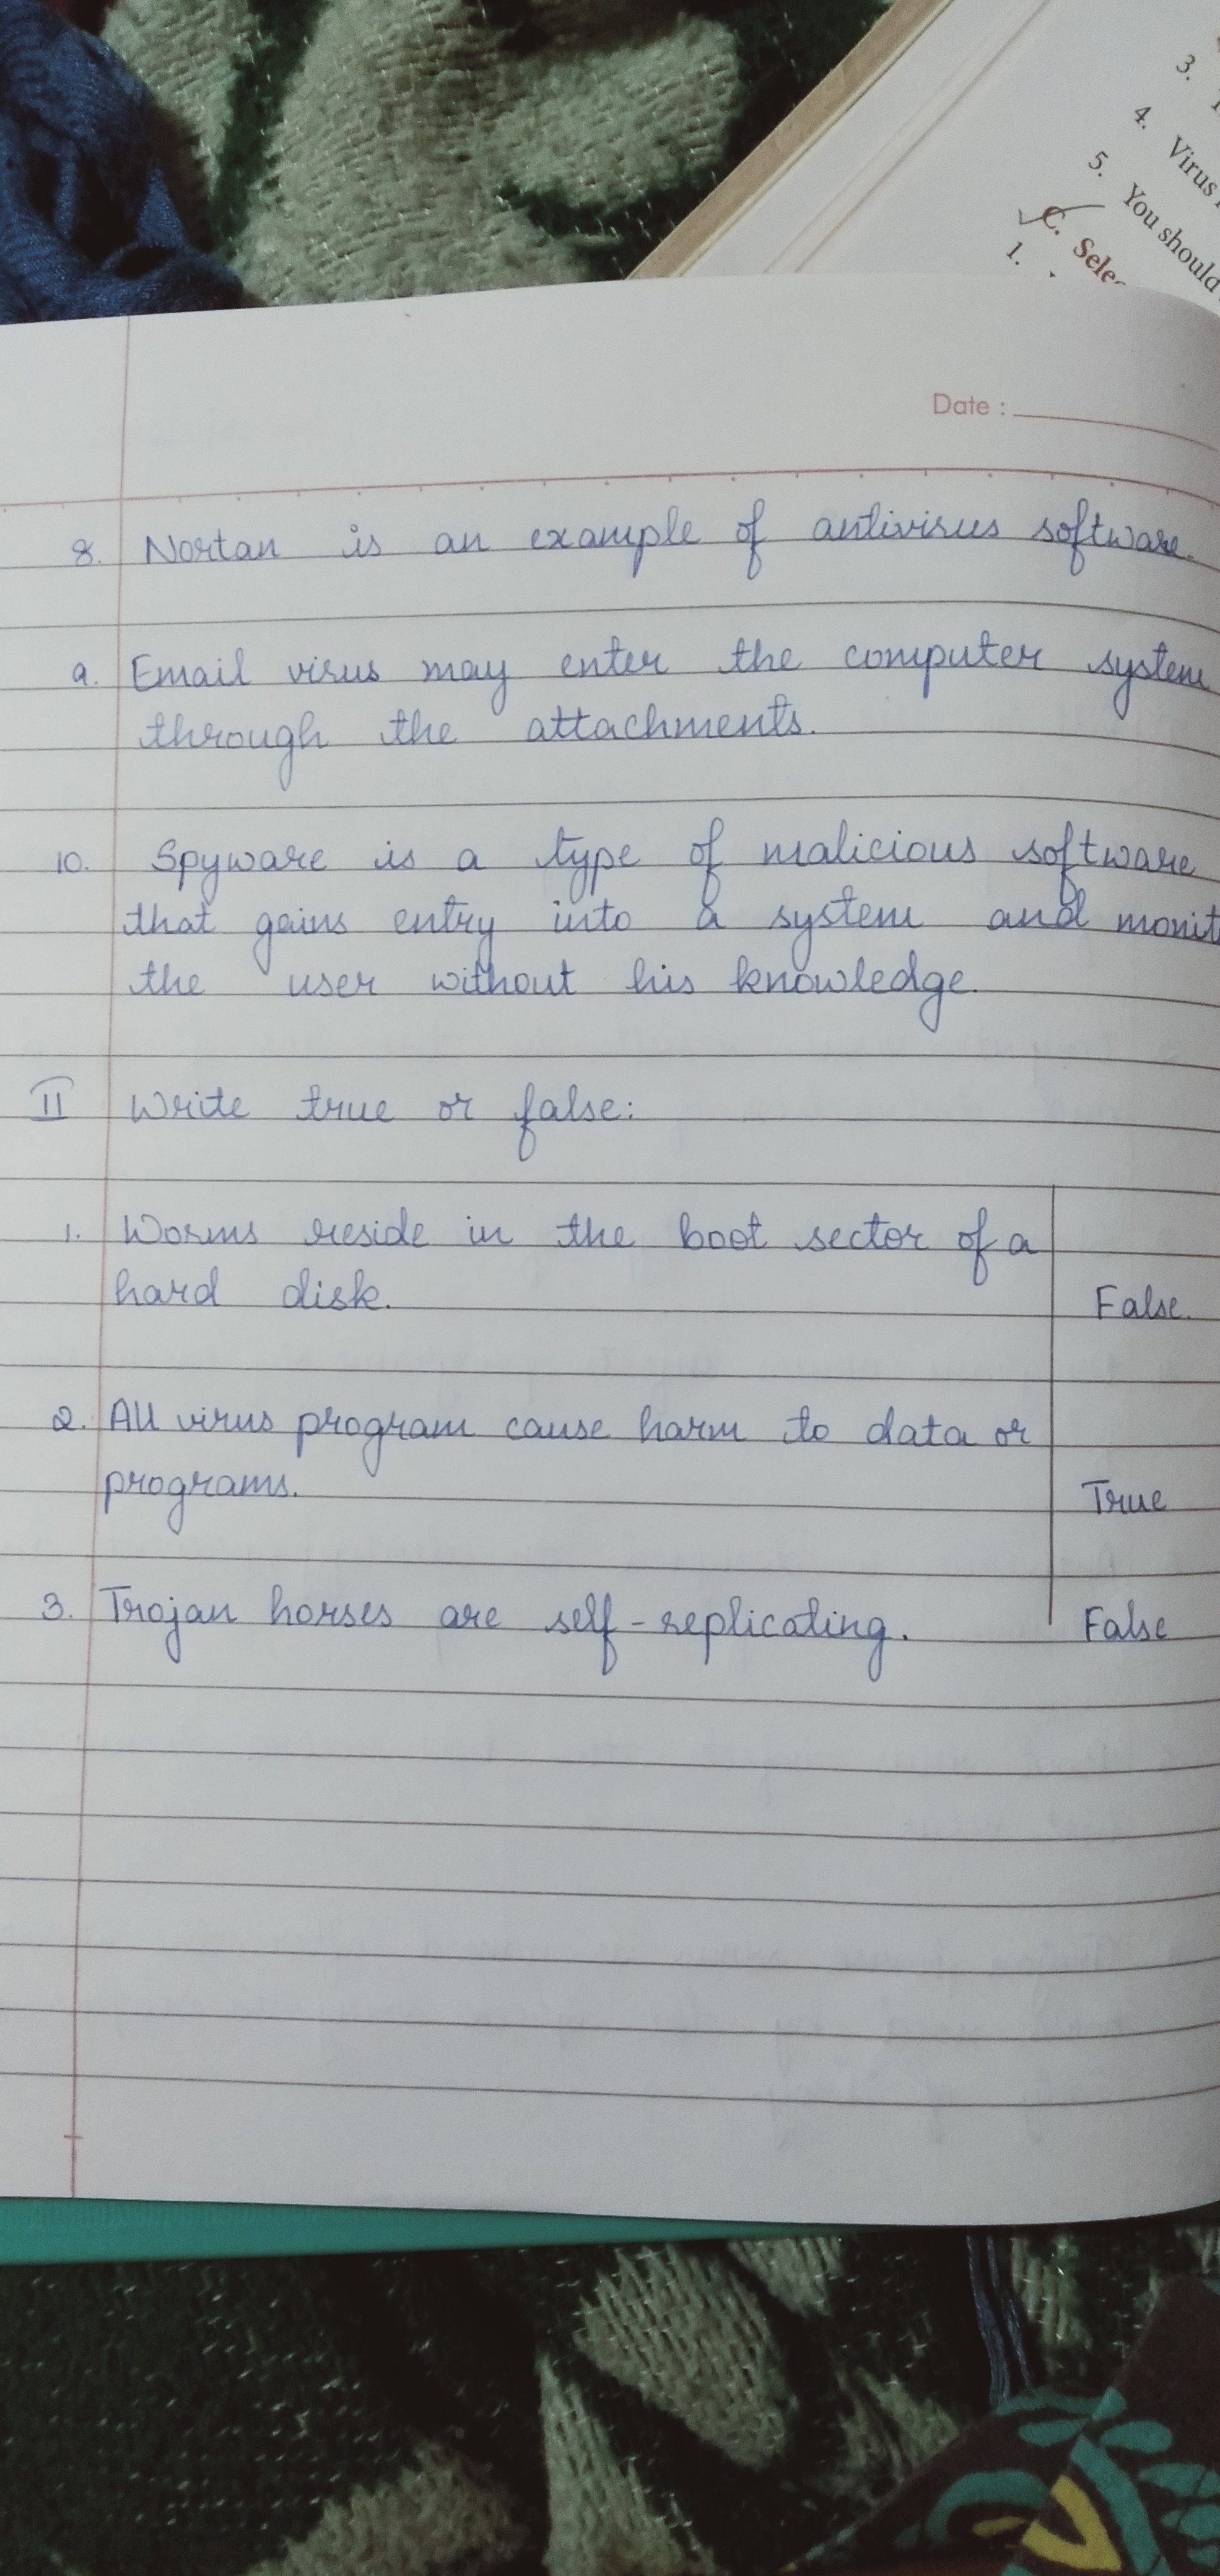 3.
4. Virus
5. You should
C. Selec
1.
Date :
8. Nortan is an example of antivirus software.
9. Email virus may enter the computer system
through the attachments.
10. Spyware is a type of malicious software
that gains entry into a system and monit
the user without his knowledge.
II Write true or false:
1. Worms reside in the boot sector of a
hard disk. False.
2. All virus program cause harm to data or
programs. True
3. Trojan horses are self-replicating. False